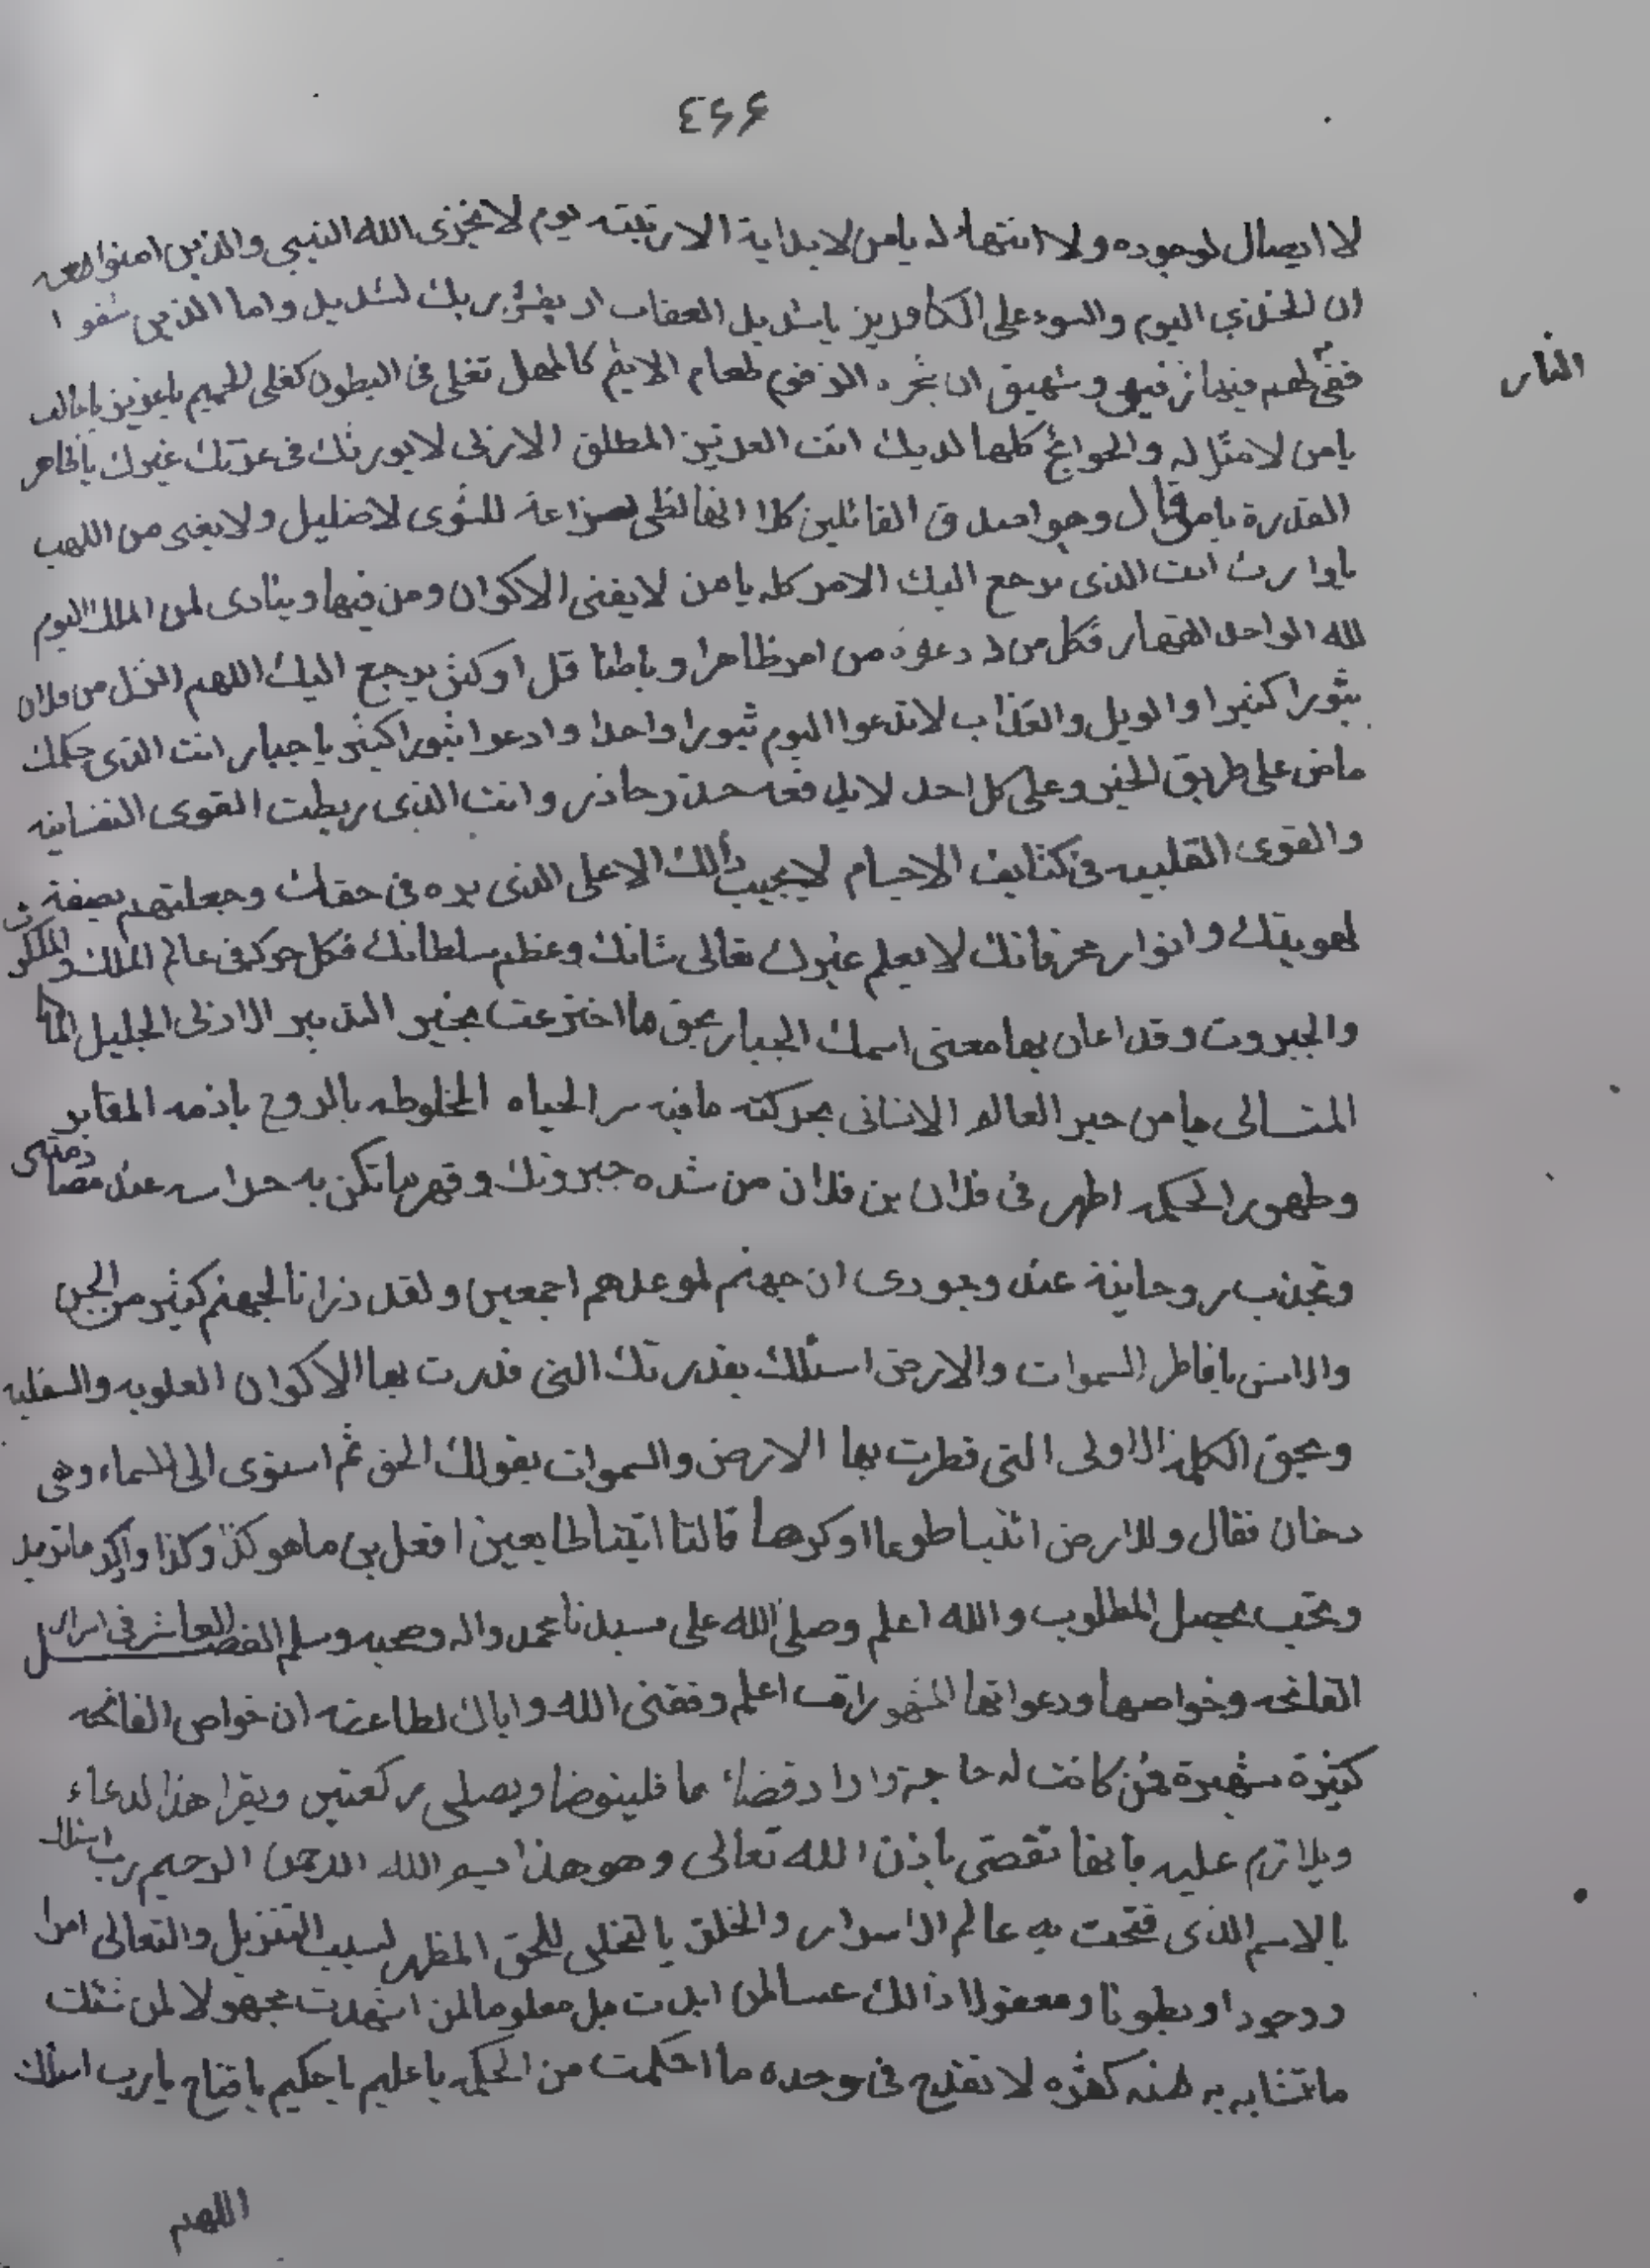 ٤٦٦
لا ايصال لوجوده ولا انتهاء له يامن لا بداية الا رتبته يوم لا يخزى الله النبي والذين امنوا معه
ان الخزي اليوم والسوء على الكافرين يا شديد العقاب ان بطش ربك لشديد واما الذين شقوا
ففى لهم فيها زفير وشهيق ان شجره الزقوم طعام الاثيم كالمهل تغلى فى البطون كغلى الحميم يا عزيز يا غالب
النار
يامن لا مثل له والحوائج كلها لديك انت العزيز المطلق الازلى لا يورثك فى عزتك غيرك يا ظاهر
القدرة يامن قال وهو اصدق القائلين كلا انها لظى نزاعة للشوى لا ضليل ولا يغنى من اللهب
يا وارث انت الذى يرجع اليك الامر كله يا من لا يفنى الاكوان ومن فيها وينادى لمن الملك اليوم
لله الواحد القهار فكل من له دعوة من امر ظاهرا وباطنا قل او كثر يرجع اليك اللهم انزل من فلان
ثبورا كثيرا والويل والعذاب لا تدعوا اليوم ثبورا واحدا وادعوا ثبورا كثير يا جبار انت الذى حكمك
ماض على طريق الخير وعلى كل احد لا يدفعه حذر حاذر وانت الذى ربطت القوى النفسانيه
والقوى القلبيه فى كثايف الاجسام لا يجيب ذالك الاعلى الذى يره فى حقك وجعلتهم بصيفة
لهويتك وانوار عرفانك لا يعلم غيرك تعالى شانك وعظم سلطانك فكل حركه فى عالم الملك والملكو
والجبروت وقد اعان بها معنى اسمك الجبار بحق ما اخترعت بخير التدبير الازلى الجليل
المتسالى يا من حير العالم الانسانى بحركته مافيه سر الحياه المخلوطه بالروح باذمه المقابر
وظهور الحكمه اظهر فى فلان بن فلان من شده جبروتك وقهر ماتكن به حراسه عند مصادمتى
وتجذب روحانية عند وجودى ان جهنم لموعدهم اجمعين ولقد ذرانا لجهنم كثير من الجن
والانس يا فاطر السموات والارض اسئلك بقدرتك التى قدرت بها الاكوان العلويه والسفليه
وبحق الكلمة الاولى التى فطرت بها الارض والسموات بقولك الحق ثم استوى الى السماء وهى
دخان فقال وللارض ائتيا طوعا اوكرها قالتا اتينا طايعين افعل بى ماهو كذا وكذا واذكر ماتريد
وتحب يحصل المطلوب والله اعلم وصلى الله على سيدنا محمد واله وصحبه وسلم الفصل العاشر فى اسرار
الفاتحه وخواصها ودعواتها المشهورات اعلم وفقنى الله واياك لطاعته ان خواص الفاتحه
كثيرة شهيرة فمن كانت له حاجة واراد قضائها فليتوضا ويصلى ركعتين ويقرا هذا لدعاء
ويلازم عليه فانها تقضى باذن الله تعالى وهو هذا بسم الله الرحمن الرحيم رب اسئلك
بالاسم الذى فتحت به عالم الاسرار والخلق بالتجلى للحق المظهر لسبب التنزيل والتعالى امرا
ووجودا وبطونا ومعقولا ذالك عسالمن ابدت بل معلوما لمن اشهدت مجهولا لمن شئت
ماتشابه به طنه كثره لا تقدح فى وحده ما احكمت من الحكمه يا عليم يا حكيم يا فتاح يارب اسئلك
اللهم